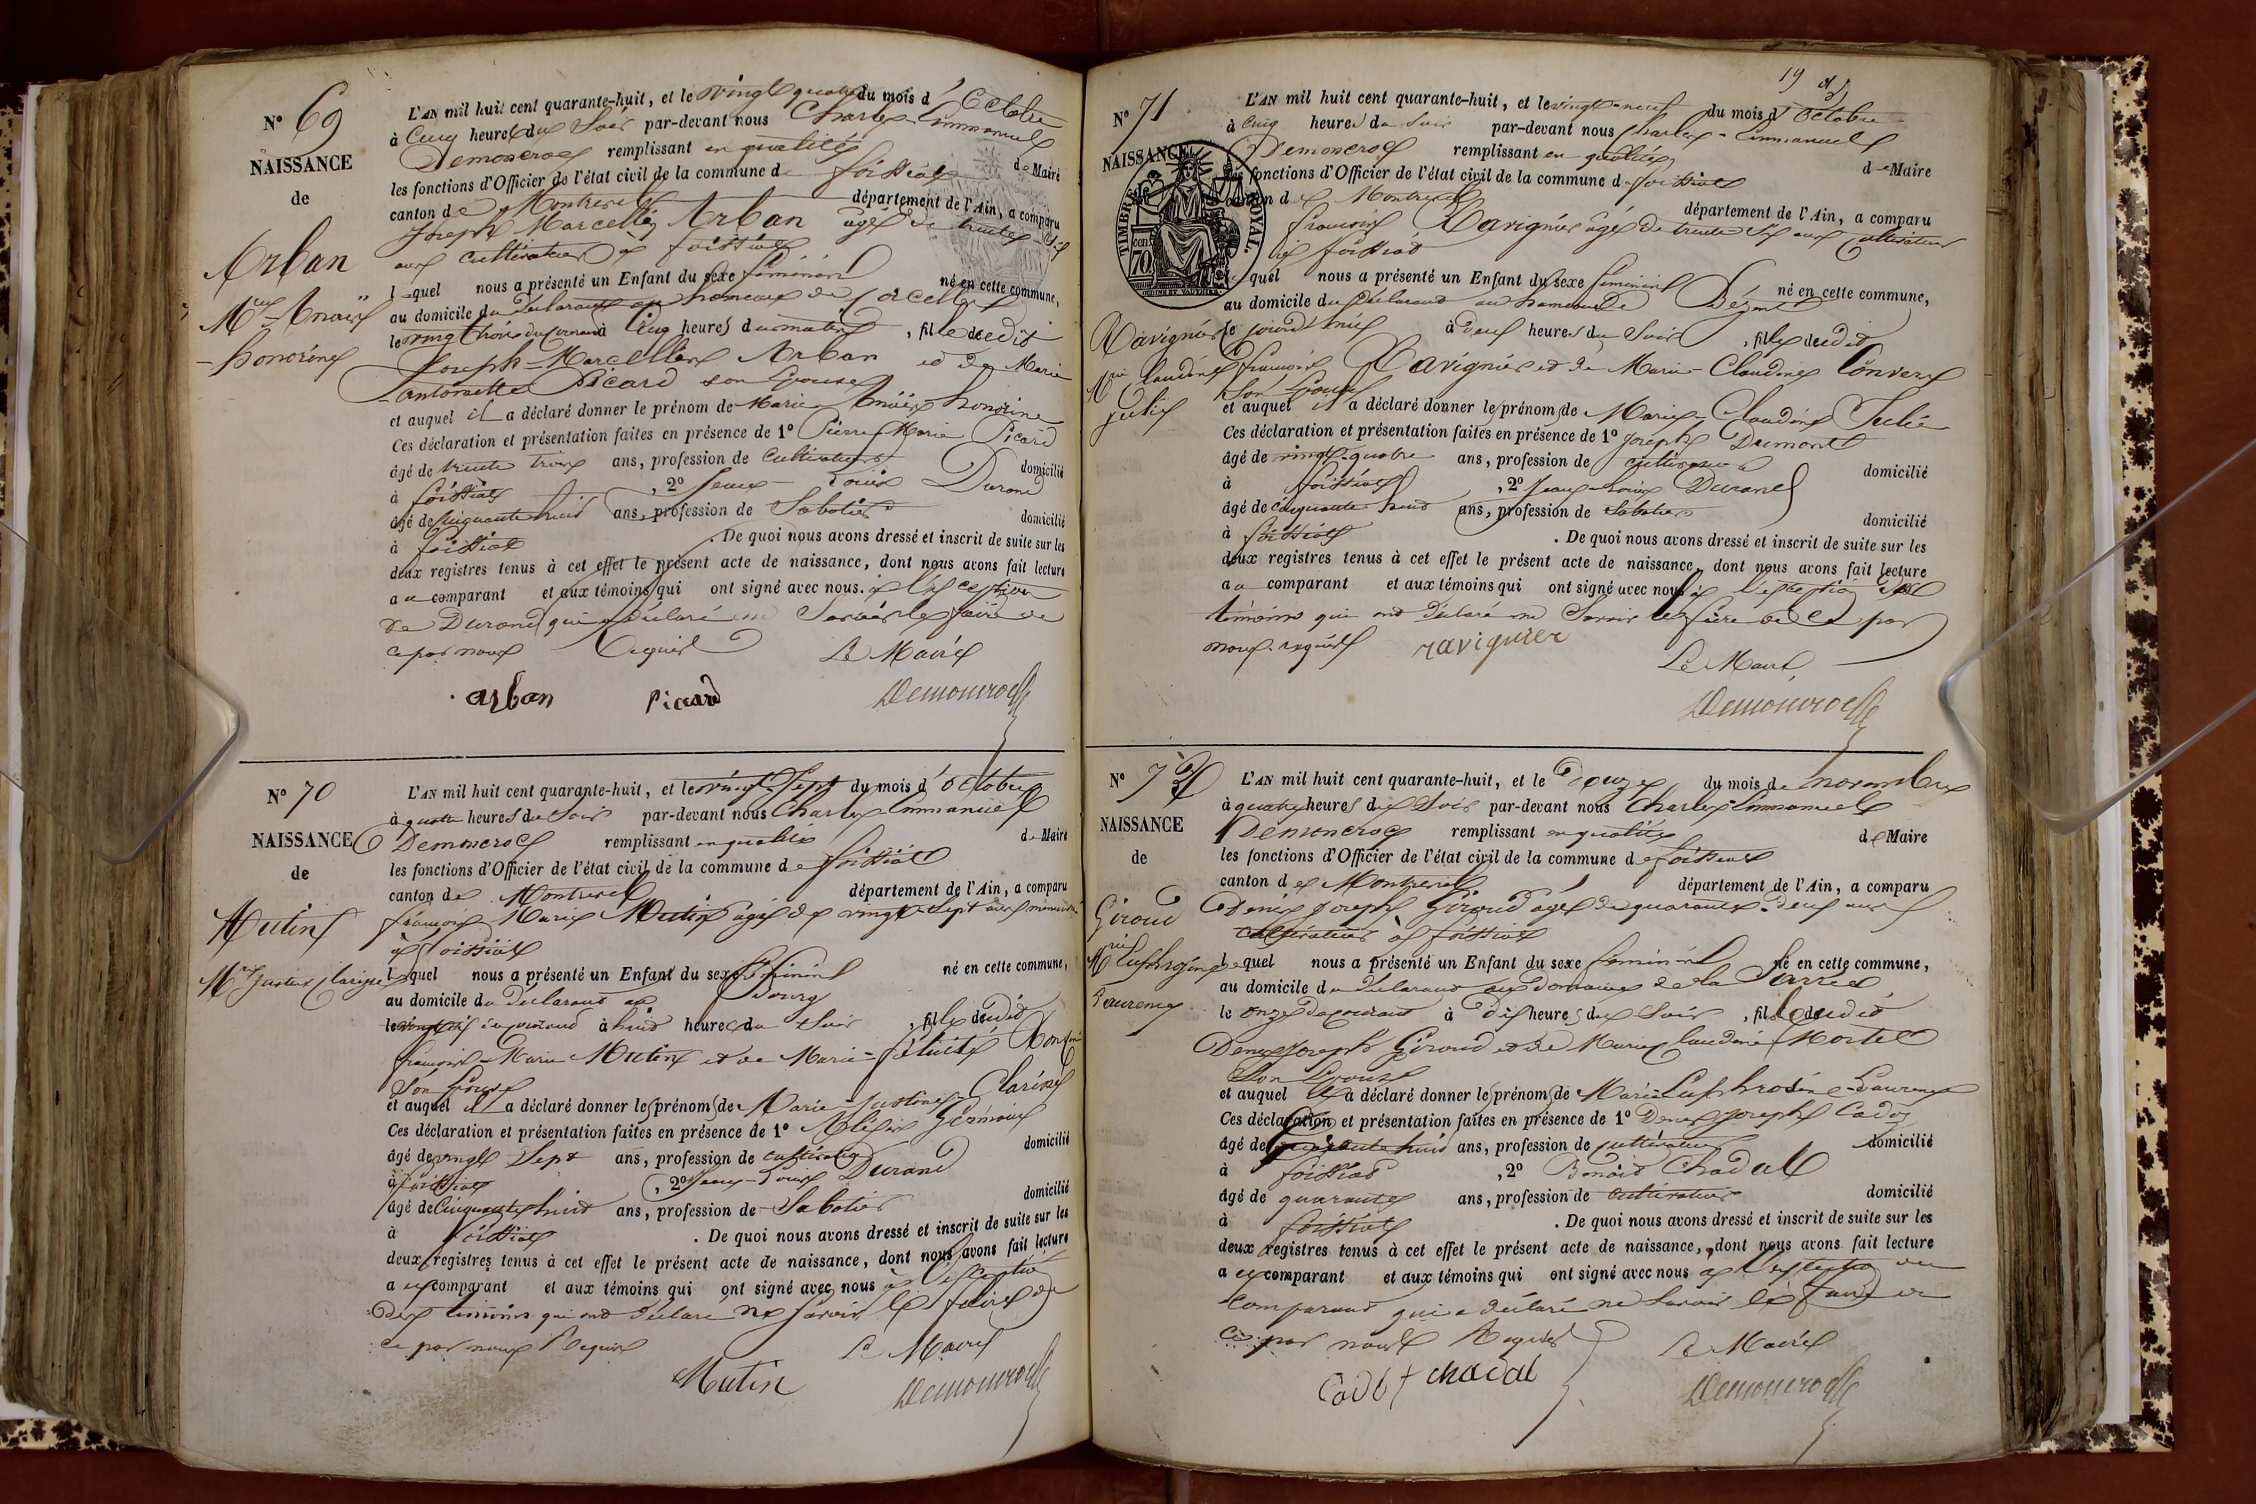 N° 69
NAISSANCE
de
Arban
Mie Anaïs
Honorine
L'AN mil huit cent quarante-huit, et le vingt quatre du mois d'Octobre
à Cinq heures du Soir par-devant nous Charles Emmanuel
Demoncroc remplissant en qualité de Maire
les fonctions d'Officier de l'état civil de la commune de foissiat
canton de Montrevel département de l'Ain, a comparu
Joseph Marcellin Arban âgé de trente six
ans cultivateur à foissiat
lequel nous a présenté un Enfant du sexe féminin né en cette commune,
au domicile du déclarant au hameau de
le vingt trois du courant à Cinq heures du matin, fille dudit
Joseph-Marcellin Arban et de Marie
antoinette Picard son Epouse
et auquel il a déclaré donner le prénom de Marie Anaïs honorine
Ces déclaration et présentation faites en présence de 1° Pierre Marie Picard
âgé de trente trois ans, profession de cultivateur domicilié
à foissiat, 2° Jean-Louis Durand
âgé de cinquante huit ans, profession de Sabotier domicilié
à foissiat. De quoi nous avons dressé et inscrit de suite sur les
deux registres tenus à cet effet le présent acte de naissance, dont nous avons fait lecture
au comparant et aux témoins qui ont signé avec nous à l'Exception
de Durand qui a déclaré ne Savoir le faire de
ce par nous Requis Le Maire
arban Picard Demoncroc
N° 70
NAISSANCE
de
Mutin
Mie Justine Clarisse
L'AN mil huit cent quarante-huit, et le vingt-Sept du mois d'octobre
à quatre heures du Soir par-devant nous Charles Emmanuel
Demoncroc remplissant en qualité de Maire
les fonctions d'Officier de l'état civil de la commune de foissiat
canton de Montrevel département de l'Ain, a comparu
françois Marie Mutin âgé de vingt-Sept ans menuisier
à foissiat
lequel nous a présenté un Enfant du sexe féminin né en cette commune,
au domicile du déclarant au Bourg
le vingt six du courant à huit heures du Soir, fille dudit
françois-Marie Mutin et de Marie-félicité
Son Epouse
et auquel il a déclaré donner les prénoms de Marie-Justine-Clarisse
Ces déclaration et présentation faites en présence de 1° Germain
âgé de vingt Sept ans, profession de cultivateur domicilié
à foissiat, 2° Jean-Louis Durand
âgé de Cinquante huit ans, profession de Sabotier domicilié
à foissiat. De quoi nous avons dressé et inscrit de suite sur les
deux registres tenus à cet effet le présent acte de naissance, dont nous avons fait lecture
au comparant et aux témoins qui ont signé avec nous à l'exception
des témoins qui ont déclaré ne Savoir le faire de
ce par nous Requis Le Maire
Mutin Demoncroc
19
N° 71
NAISSANCE
de
TIMBRE ROYAL.
cent. 70
Ravignier
Mie Claudine
Julie
L'AN mil huit cent quarante-huit, et le vingt-neuf du mois d'Octobre
à Cinq heures du Soir par-devant nous Charles-Emmanuel
Demoncroc remplissant en qualité de Maire
les fonctions d'Officier de l'état civil de la commune de foissiat
canton de Montrevel département de l'Ain, a comparu
françois Ravignier âgé de trente Six ans cultivateur
à foissiat
lequel nous a présenté un Enfant du sexe féminin né en cette commune,
au domicile du déclarant au hameau de
le jourd'hui à deux heures du Soir, fille dudit
françois Ravignier et de Marie-Claudine Convert
Son Epouse
et auquel il a déclaré donner les prénoms de Marie-Claudine Julie
Ces déclaration et présentation faites en présence de 1° Joseph Dumont
âgé de vingt-quatre ans, profession de cultivateur domicilié
à foissiat, 2° Jean-Louis Durand
âgé de cinquante huit ans, profession de Sabotier domicilié
à foissiat. De quoi nous avons dressé et inscrit de suite sur les
deux registres tenus à cet effet le présent acte de naissance, dont nous avons fait lecture
au comparant et aux témoins qui ont signé avec nous à l'exception des
témoins qui ont déclaré ne Savoir le faire de ce par
nous requis ravignier Le Maire
Demoncroc
N° 72
NAISSANCE
de
Giroud
Mie Euphrosine
Laurence
L'AN mil huit cent quarante-huit, et le Douze du mois de novembre
à quatre heures du Soir par-devant nous Charles-Emmanuel
Demoncroc remplissant en qualité de Maire
les fonctions d'Officier de l'état civil de la commune de foissiat
canton de Montrevel département de l'Ain, a comparu
Denis Joseph Giroud âgé de quarante-deux ans
cultivateur à foissiat
lequel nous a présenté un Enfant du sexe féminin né en cette commune,
au domicile du déclarant au Domaine de la Serrée
le onze du courant à dix heures du Soir, fille dudit
Denis Joseph Giroud et de Marie Claudine Mortel
Son Epouse
et auquel il a déclaré donner les prénoms de Marie Euphrosine-Laurence
Ces déclaration et présentation faites en présence de 1° Denis Joseph Cadot
âgé de huit ans, profession de cultivateur domicilié
à foissiat, 2° Benoit Chadal
âgé de quarante ans, profession de cultivateur domicilié
à foissiat. De quoi nous avons dressé et inscrit de suite sur les
deux registres tenus à cet effet le présent acte de naissance, dont nous avons fait lecture
au comparant et aux témoins qui ont signé avec nous à l'exception du
comparant qui a déclaré ne Savoir le faire de
ce par nous Requis Le Maire
Cadot chadal Demoncroc